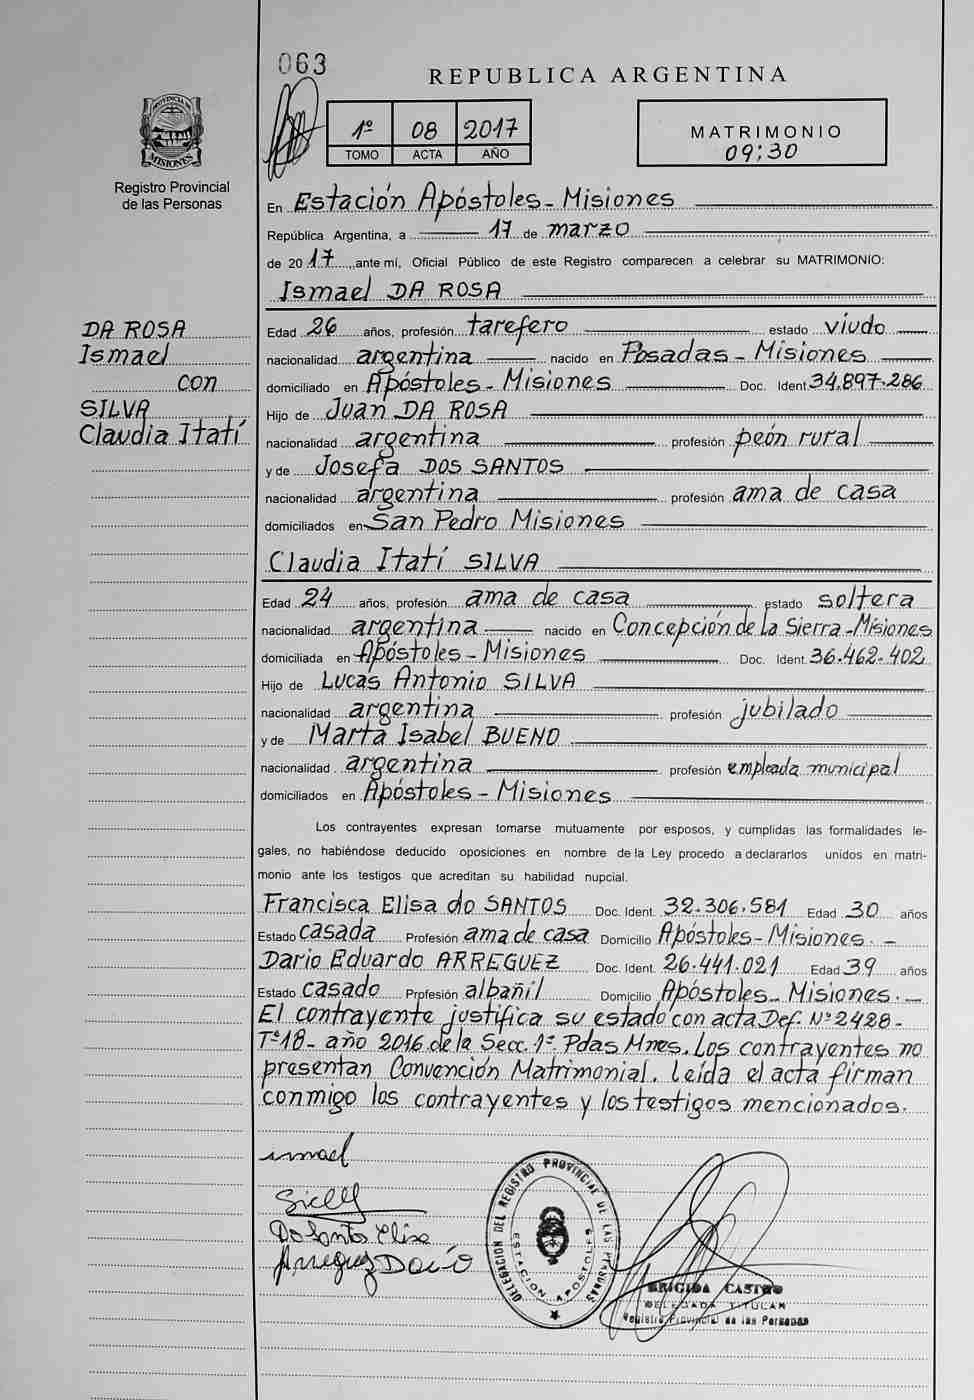 063
REPUBLICA ARGENTINA
PROVINCIA DE
MISIONES
Registro Provincial
de las Personas
1º 08 2017
TOMO ACTA AÑO
MATRIMONIO
09:30
En Estación Apóstoles - Misiones
República Argentina, a 17 de marzo
de 2017, ante mí, Oficial Público de este Registro comparecen a celebrar su MATRIMONIO:
Ismael DA ROSA
DA ROSA
Ismael
con
SILVA
Claudia Itatí
Edad 26 años, profesión tarefero estado viudo
nacionalidad argentina nacido en Posadas - Misiones
domiciliado en Apóstoles - Misiones Doc. Ident. 34.897.286
Hijo de Juan DA ROSA
nacionalidad argentina profesión peón rural
y de Josefa DOS SANTOS
nacionalidad argentina profesión ama de casa
domiciliados en San Pedro Misiones
Claudia Itatí SILVA
Edad 24 años, profesión ama de casa estado soltera
nacionalidad argentina nacido en Concepción de la Sierra - Misiones
domiciliada en Apóstoles - Misiones Doc. Ident. 36.462.402
Hijo de Lucas Antonio SILVA
nacionalidad argentina profesión jubilado
y de Marta Isabel BUENO
nacionalidad argentina profesión empleada municipal
domiciliados en Apóstoles - Misiones
Los contrayentes expresan tomarse mutuamente por esposos, y cumplidas las formalidades le-
gales, no habiéndose deducido oposiciones en nombre de la Ley procedo a declararlos unidos en matri-
monio ante los testigos que acreditan su habilidad nupcial.
Francisca Elisa do SANTOS Doc. Ident. 32.306.581 Edad 30 años
Estado casada Profesión ama de casa Domicilio Apóstoles - Misiones. -
Dario Eduardo ARREGUEZ Doc. Ident. 26.441.021 Edad 39 años
Estado casado Profesión albañil Domicilio Apóstoles - Misiones. -
El contrayente justifica su estado con acta Def. Nº 2428 -
Tº 18 - año 2016 de la Secc. 1º. Pdas Mnes. Los contrayentes no
presentan Convención Matrimonial. Leída el acta firman
conmigo los contrayentes y los testigos mencionados.
ismael
Do Santo Elisa
Arreguez Darío
DELEGACION DEL REGISTRO PROVINCIAL DE LAS PERSONAS
ESTACION APOSTOLES
BRIGIDA CASTRO
DELEGADA TITULAR
Registro Provincial de las Personas